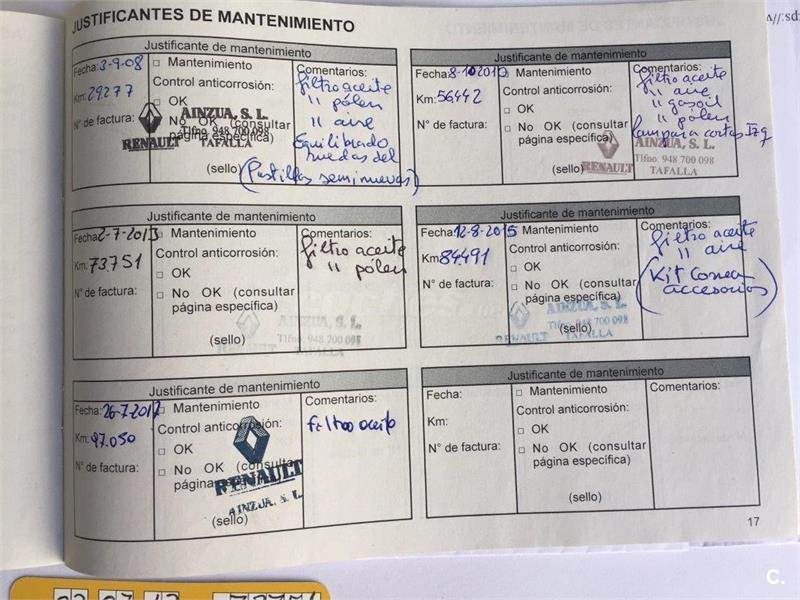 JUSTIFICANTES DE MANTENIMIENTO
Justificante de mantenimiento
Fecha: 3-9-08
Km: 29277
N° de factura:
□ Mantenimiento
Control anticorrosión:
□ OK
□ No OK (consultar
página específica)
(sello)
AINZUA, S. L.
Tlfno. 948 700 098
TAFALLA
RENAULT
Comentarios:
filtro aceite
" pólen
" aire
Equilibrado
ruedas del
(Pastillas seminuevas)
Justificante de mantenimiento
Fecha: 8-10
Km: 56442
N° de factura:
□ Mantenimiento
Control anticorrosión:
□ OK
□ No OK (consultar
página específica)
(sello)
RENAULT
AINZUA, S. L.
Tlfno. 948 700 098
TAFALLA
Comentarios:
filtro aceite
" aire
" gasoil
" pólen
Lampara cortas Izq
Justificante de mantenimiento
Fecha: 2-7-2013
Km: 73.751
N° de factura:
□ Mantenimiento
Control anticorrosión:
□ OK
□ No OK (consultar
página específica)
(sello)
RENAULT
AINZUA, S. L.
Tlfno. 948 700 098
TAFALLA
Comentarios:
filtro aceite
" pólen
Justificante de mantenimiento
Fecha: 12-8-2015
Km: 84491
N° de factura:
□ Mantenimiento
Control anticorrosión:
□ OK
□ No OK (consultar
página específica)
(sello)
RENAULT
AINZUA, S. L.
Tlfno. 948 700 098
TAFALLA
Comentarios:
filtro aceite
" aire
(Kit correa
accesorios)
Justificante de mantenimiento
Fecha: 26-7-2017
Km: 97.050
N° de factura:
□ Mantenimiento
Control anticorrosión:
□ OK
□ No OK (consultar
página específica)
(sello)
RENAULT
AINZUA, S. L.
Comentarios:
Filtro aceite
Justificante de mantenimiento
Fecha:
Km:
N° de factura:
□ Mantenimiento
Control anticorrosión:
□ OK
□ No OK (consultar
página específica)
(sello)
Comentarios:
17
C.